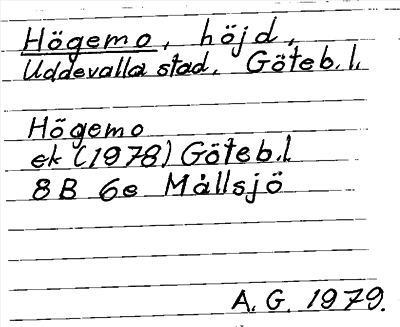 Högemo, höjd,
Uddevalla stad, Göteb.l.
Högemo
ek (1978) Göteb.l
8B 6e Mållsjö
A. G. 1979.